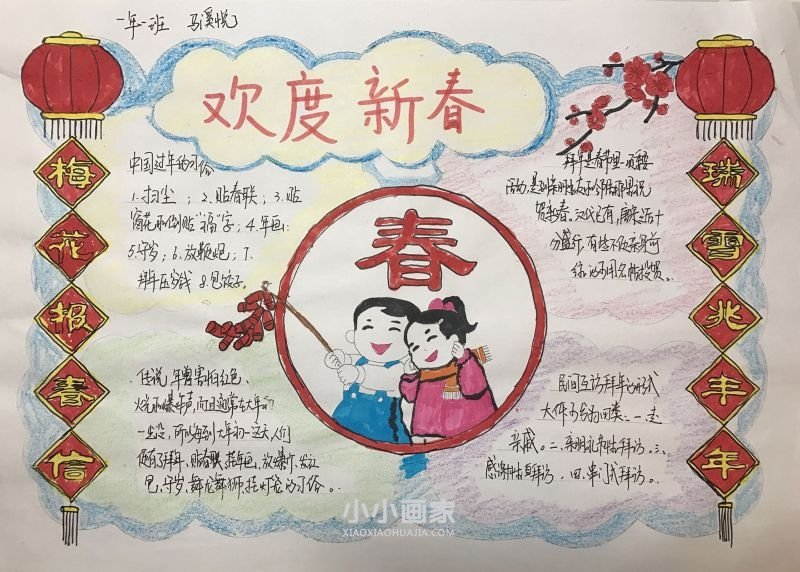 一年一班 马溪悦
欢度新春
梅花报春信
瑞雪兆丰年
春
中国过年的习俗
1.扫尘；2.贴春联；3.贴
窗花和倒贴“福”字；4.年画；
5.守岁；6.放鞭炮；7.
拜年压岁钱 8.包饺子。
拜年是春节里一项
活动，是到亲朋好友家
贺新春。汉代已有，唐宋之后十
分盛行，有些不必亲身前
往，
传说，年兽害怕红色、
火光和爆炸声，而且通常在大年初
一出没，所以每到大年初一这天，人们
便有了拜年、贴春联、挂年画、放爆竹、发红
包、守岁、舞龙舞狮、挂灯笼的习俗。
民间互访拜年的形式
大体分为四类：一、走
亲戚。二、亲朋礼节性拜访。三、
感谢性拜访，四、串门式拜访。
小小画家
XIAOXIAOHUAJIA.COM